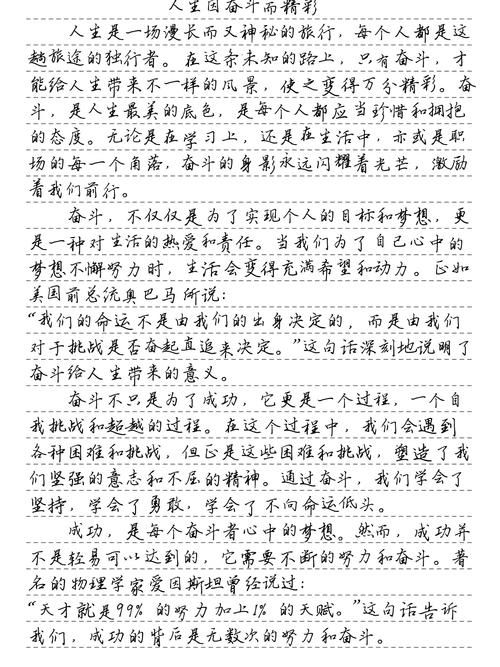 人生因奋斗而精彩
人生是一场漫长而又神秘的旅行，每个人都是这
趟旅途的独行者。在这条未知的路上，只有奋斗，才
能给人生带来不一样的风景，使之变得万分精彩。奋
斗，是人生最美的底色，是每个人都应当珍惜和拥抱
的态度。无论是在学习上，还是在生活中，亦或是职
场的每一个角落，奋斗的身影永远闪耀着光芒，激励
着我们前行。
奋斗，不仅仅是为了实现个人的目标和梦想，更
是一种对生活的热爱和责任。当我们为了自己心中的
梦想不懈努力时，生活会变得充满希望和动力。正如
美国前总统奥巴马所说：
“我们的命运不是由我们的出身决定的，而是由我们
对于挑战是否奋起直追来决定。”这句话深刻地说明了
奋斗给人生带来的意义。
奋斗不只是为了成功，它更是一个过程，一个自
我挑战和超越的过程。在这个过程中，我们会遇到
各种困难和挑战，但正是这些困难和挑战，塑造了我
们坚强的意志和不屈的精神。通过奋斗，我们学会了
坚持，学会了勇敢，学会了不向命运低头。
成功，是每个奋斗者心中的梦想。然而，成功并
不是轻易可以达到的，它需要不断的努力和奋斗。著
名的物理学家爱因斯坦曾经说过：
“天才就是99% 的努力加上1% 的天赋。”这句话告诉
我们，成功的背后是无数次的努力和奋斗。